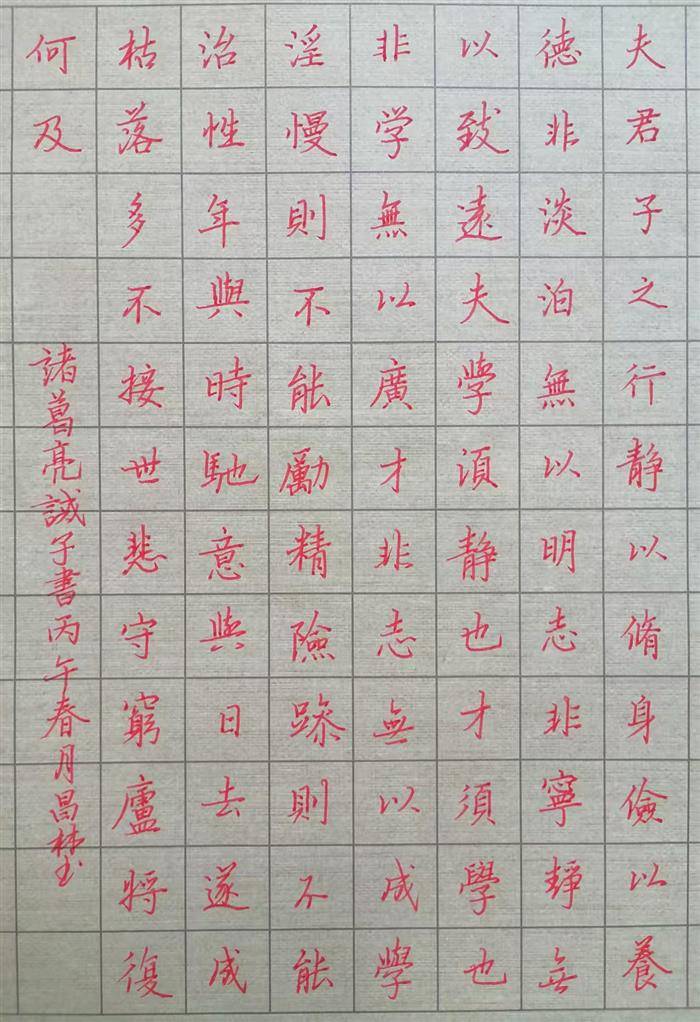 夫君子之行静以脩身儉以養
德非淡泊無以明志非寧靜無
以致遠夫學須静也才須學也
非学無以廣才非志無以成學
淫慢則不能勵精險躁則不能
治性年與時馳意與日去遂成
枯落多不接世悲守窮廬將復
何及
諸葛亮誡子書丙午春月昌林书